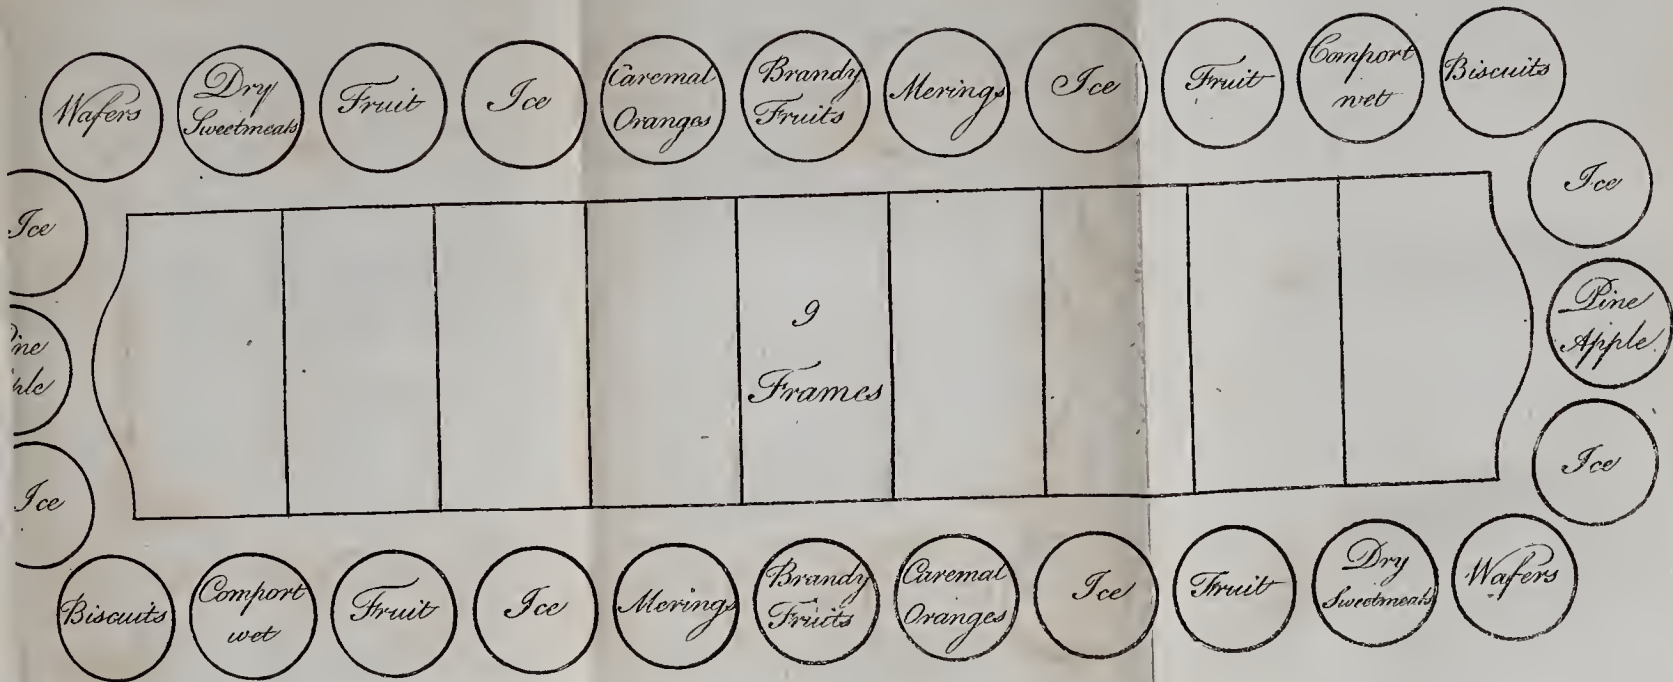 Wafers
Dry
Sweetmeats
Fruit
Ice
Caremal
Oranges
Brandy
Fruits
Merings
Ice
Fruit
Comport
wet
Biscuits
Ice
Ice
Pine
Apple
9
Frames
ne
ple
Ice
Ice
Biscuits
Comport
wet
Fruit
Ice
Merings
Brandy
Fruits
Caremal
Oranges
Ice
Fruit
Dry
Sweetmeats
Wafers